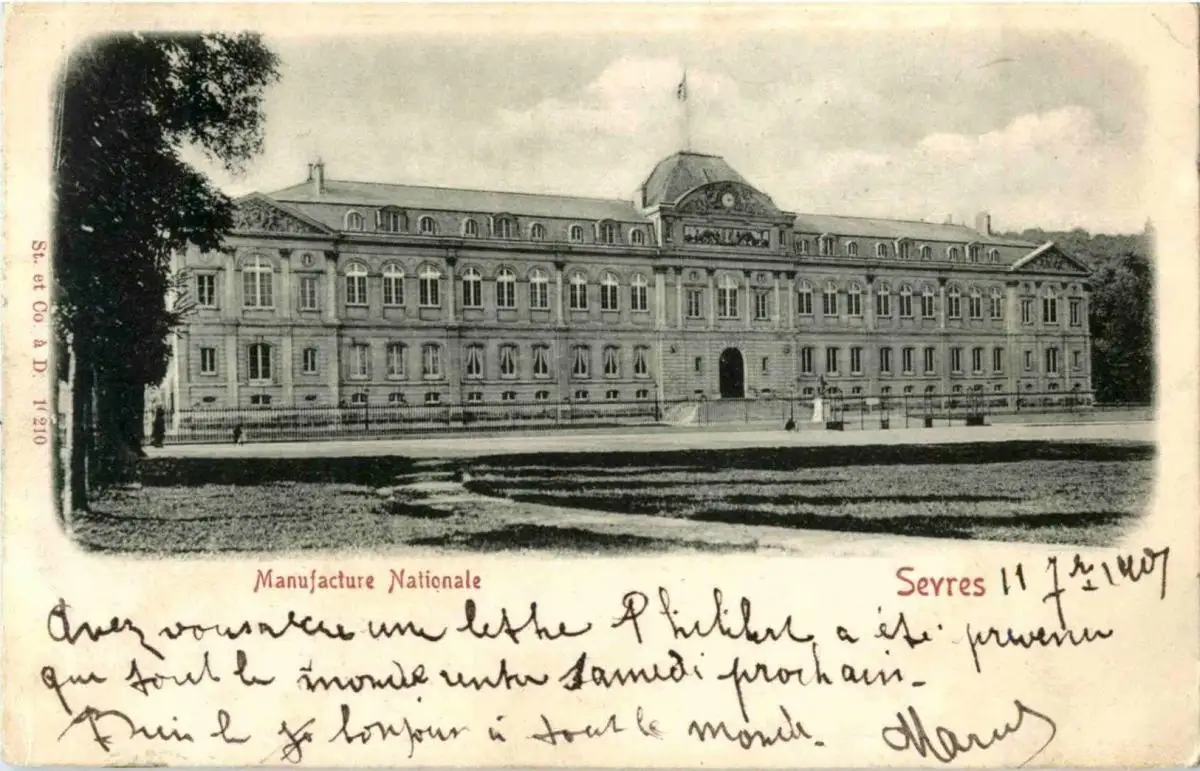 St. et Co. à D. 1(210
Manufacture Nationale
Sevres 11 7re 1907
Avez vous une lettre Philibert a été prevenu
que tout le monde rentre Samedi prochain.
bonjour à tout le monde. Marcel